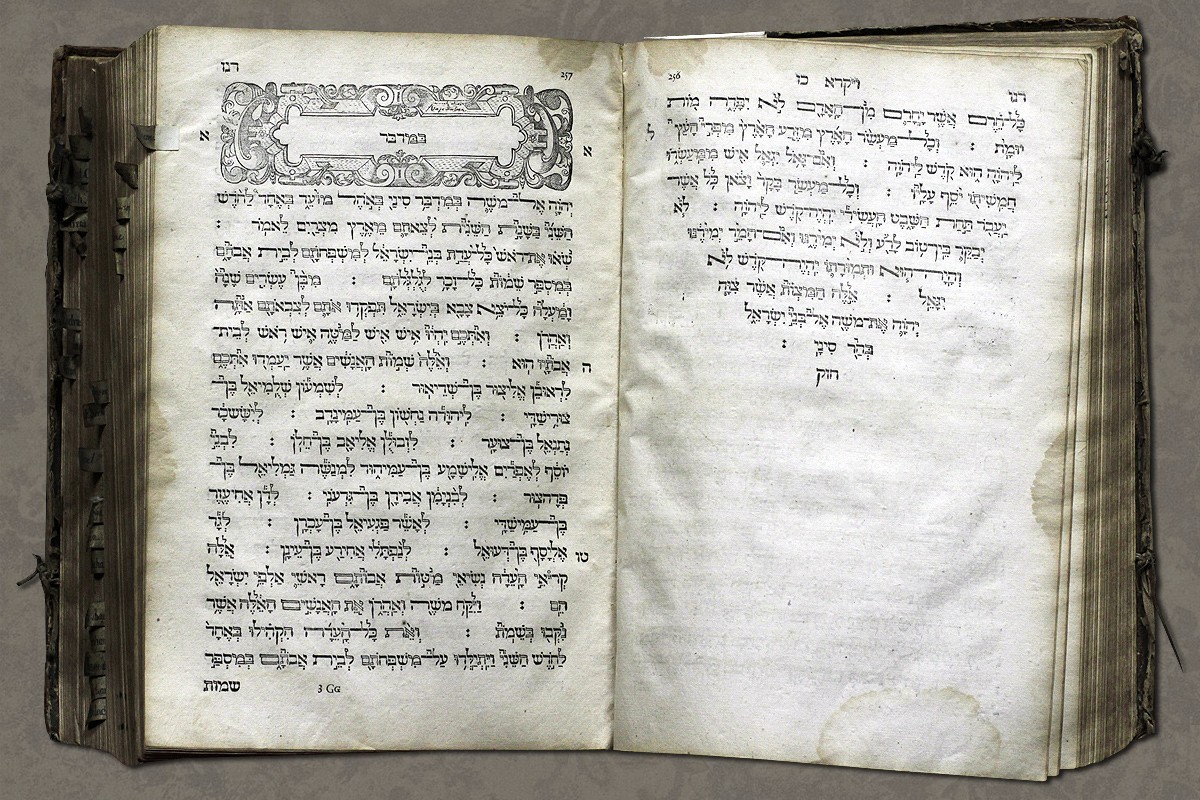 256 ויקרא כז רנו
כָּל־חֵרֶם אֲשֶׁר יָחֳרַם מִן־הָאָדָם לֹא יִפָּדֶה מוֹת
ל יוּמָת : וְכָל־מַעְשַׂר הָאָרֶץ מִזֶּרַע הָאָרֶץ מִפְּרִי הָעֵץ
לַיהוָה הוּא קֹדֶשׁ לַיהוָה : וְאִם־גָּאֹל יִגְאַל אִישׁ מִמַּעַשְׂרוֹ
חֲמִשִׁיתוֹ יֹסֵף עָלָיו : וְכָל־מַעְשַׂר בָּקָר וָצֹאן כֹּל אֲשֶׁר
יַעֲבוֹר תַּחַת הַשָּׁבֶט הָעֲשִׂירִי יִהְיֶה־קֹּדֶשׁ לַיהוָה : לֹא
יְבַקֵּר בֵּין־טוֹב לָרַע וְלֹא יְמִירֶנּוּ וְאִם־הָמֵר יְמִירֶנּוּ
וְהָיָה־הוּא וּתְמוּרָתוֹ יִהְיֶה־קֹדֶשׁ לֹא
יִגָּאֵל : אֵלֶּה הַמִּצְוֹת אֲשֶׁר צִוָּה
יְהוָה אֶת־מֹשֶׁה אֶל־בְּנֵי יִשְׂרָאֵל
בְּהַר סִינָי :
חזק
257 רנז
א בְּמִדְבַּר א
יְהוָה אֶל־מֹשֶׁה בְּמִדְבַּר סִינַי בְּאֹהֶל מוֹעֵד בְּאֶחָד לַחֹדֶשׁ
הַשֵּׁנִי בַּשָּׁנָה הַשֵּׁנִית לְצֵאתָם מֵאֶרֶץ מִצְרַיִם לֵאמֹר :
שְׂאוּ אֶת־רֹאשׁ כָּל־עֲדַת בְּנֵי־יִשְׂרָאֵל לְמִשְׁפְּחֹתָם לְבֵית אֲבֹתָם
בְּמִסְפַּר שֵׁמוֹת כָּל־זָכָר לְגֻלְגְּלֹתָם : מִבֶּן עֶשְׂרִים שָׁנָה
וָמַעְלָה כָּל־יֹצֵא צָבָא בְּיִשְׂרָאֵל תִּפְקְדוּ אֹתָם לְצִבְאֹתָם אַתָּה
וְאַהֲרֹן : וְאִתְּכֶם יִהְיוּ אִישׁ אִישׁ לַמַּטֶּה אִישׁ רֹאשׁ לְבֵית־
ה אֲבֹתָיו הוּא : וְאֵלֶּה שְׁמוֹת הָאֲנָשִׁים אֲשֶׁר יַעַמְדוּ אִתְּכֶם
לִרְאוּבֵן אֱלִיצוּר בֶּן־שְׁדֵיאוּר : לְשִׁמְעוֹן שְׁלֻמִיאֵל בֶּן־
צוּרִישַׁדָּי : לִיהוּדָה נַחְשׁוֹן בֶּן־עַמִּינָדָב : לְיִשָּׂשכָר
נְתַנְאֵל בֶּן־צוּעָר : לִזְבוּלֻן אֱלִיאָב בֶּן־חֵלֹן : לִבְנֵי
יוֹסֵף לְאֶפְרַיִם אֱלִישָׁמָע בֶּן־עַמִּיהוּד לִמְנַשֶּׁה גַּמְלִיאֵל בֶּן־
פְּדָהצוּר : לְבִנְיָמִן אֲבִידָן בֶּן־גִּדְעֹנִי : לְדָן אֲחִיעֶזֶר
בֶּן־עַמִּישַׁדָּי : לְאָשֵׁר פַּגְעִיאֵל בֶּן־עָכְרָן : לְגָד
טו אֶלְיָסָף בֶּן־דְּעוּאֵל : לְנַפְתָּלִי אֲחִירַע בֶּן־עֵינָן : אֵלֶּה
קְרִיאֵי הָעֵדָה נְשִׂיאֵי מַטּוֹת אֲבוֹתָם רָאשֵׁי אַלְפֵי יִשְׂרָאֵל
הֵם : וַיִּקַּח מֹשֶׁה וְאַהֲרֹן אֵת הָאֲנָשִׁים הָאֵלֶּה אֲשֶׁר
נִקְּבוּ בְּשֵׁמוֹת : וְאֵת כָּל־הָעֵדָה הִקְהִילוּ בְּאֶחָד
לַחֹדֶשׁ הַשֵּׁנִי וַיִּתְיַלְדוּ עַל־מִשְׁפְּחֹתָם לְבֵית אֲבֹתָם בְּמִסְפַּר
3 GG שמות